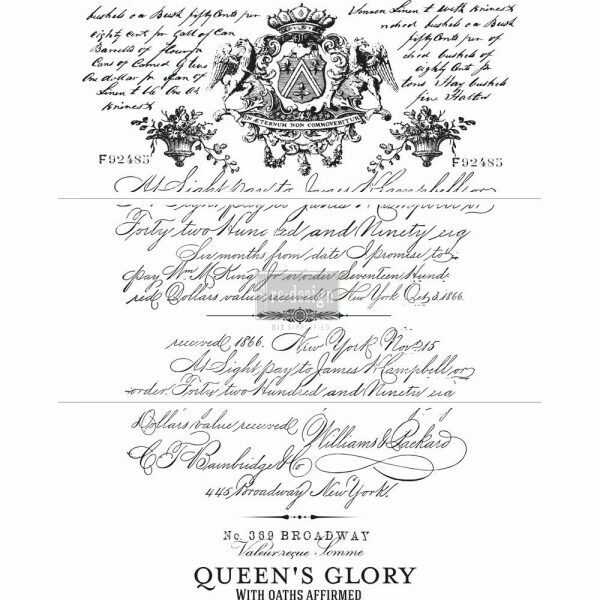 bushels oa Bush fifty Cents per
Eighty Cent for Gall of Can
Barrells of flour for
Cons of Corned G
One dollar for of
Linen t
Knines
Linen t With Knines
bushels for
fifty Cents per of
bushels of
eighty Cent for
tons Hay bushels
five
IN ETERNUM NON COMMOVEBITUR
F92485
F92485
At Sight Pay to James W Campbell or
Forty two Hundred and Ninety
Six months from date I promise to
pay Wm McKing Jr or order Seventeen Hund-
red Dollars value received New York Oct 3. 1866.
re·design
DIY SIMPLIFIED
received 1866. New York Nov. 15
At Sight pay to James W Campbell or
order. Forty two Hundred and Ninety
Dollars value received
Williams & Packard
C T Bainbridge & Co
445 Broadway New York.
No. 369 BROADWAY
Valeur reçue Somme
QUEEN'S GLORY
WITH OATHS AFFIRMED